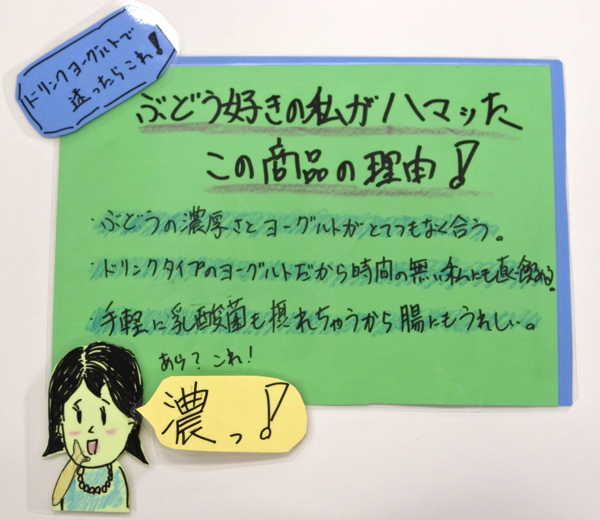 ドリンクヨーグルトで
迷ったらこれ!
ぶどう好きの私がハマッた
この商品の理由!
・ぶどうの濃厚さとヨーグルトがとてつもなく合う。
・ドリンクタイプのヨーグルトだから時間の無い私にも直ぐ飲める。
・手軽に乳酸菌も摂れちゃうから腸にもうれしい。
あら?これ!
濃っ!